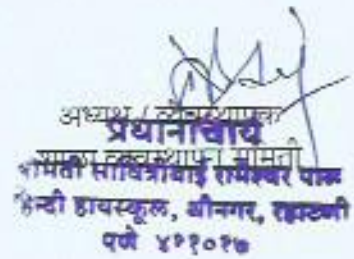 अध्यक्ष / व्यवस्थापक
प्रधानाचार्य
शाळा व्यवस्थापन समिती
श्रीमती सावित्रीबाई रामेश्वर पारू
हिन्दी हायस्कूल, श्रीनगर, रहाटणी
पुणे ४११०१७